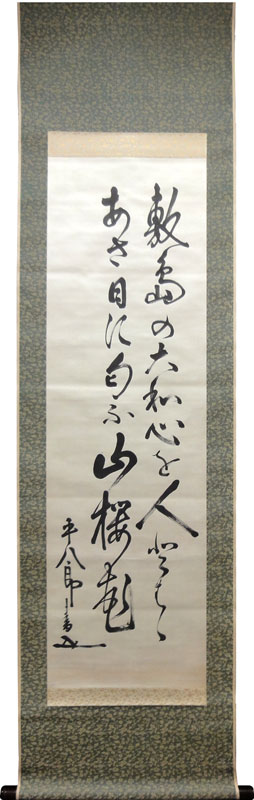 敷島の大和心を人とはゝ
あさ日に匂ふ山桜花
平八郎書